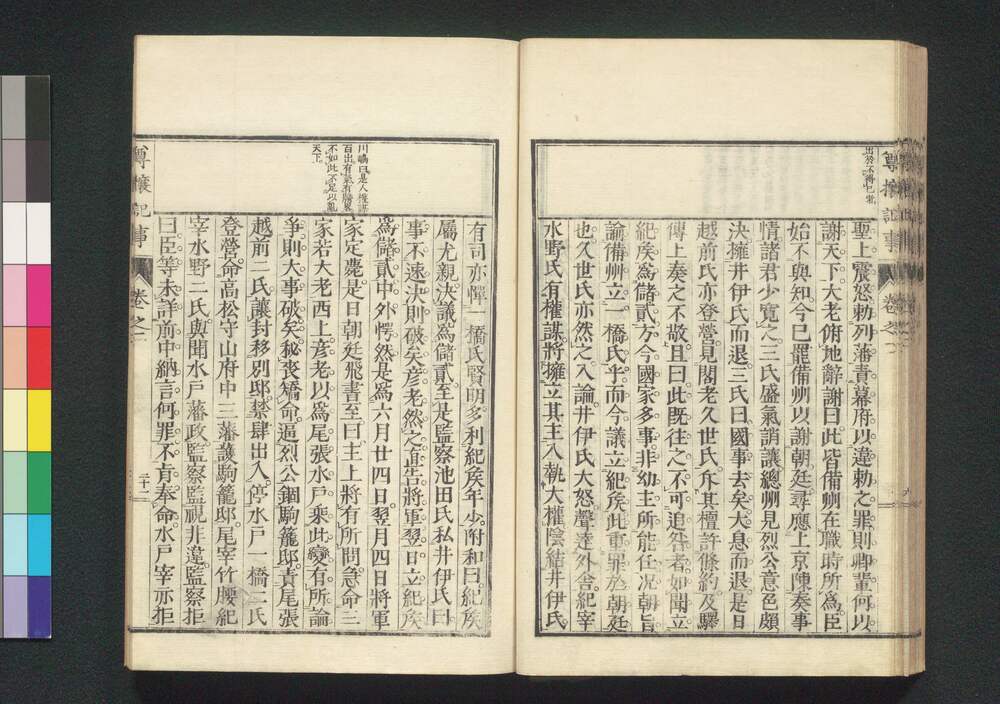 出於不得已歟
聖上震怒勅列藩責幕府以違勅之罪則卿輩何以
謝天下大老俯地辭謝曰此皆備州在職時所爲臣
始不與知今已罷備州以謝朝廷尋應上京陳奏事
情諸君少寛之三氏盛氣誚讓總州見烈公意色頗
決擁井伊氏而退三氏曰國事去矣大息而退是日
越前氏亦登營見閣老久世氏斥其擅許條約及驛
傳上奏之不敬且曰此既往之不可追咎者如聞立
紀矦爲儲貳方今國家多事非幼主所能任况朝旨
諭備州立一橋氏乎而今議立紀矦此重罪於朝廷
也久世氏亦然之入論井伊氏大怒聲達外舍紀宰
水野氏有權謀將擁立其主入執大權陰結井伊氏
尊攘記事
卷之一
川嶋曰是人權謀
百出有氣有膽畧
不如此不足以亂
天下
有司亦憚一橋氏賢明多利紀矦年少附和曰紀矦
屬尤親決議爲儲貳至是監察池田氏私井伊氏曰
事不速決則破矣彦老然之直告將軍翌日立紀矦
爲儲貳中外愕然是爲六月廿四日翌月四日將軍
家定薨是日朝廷飛書至曰主上將有所問急命三
家若大老西上彦老以爲尾張水戸乘此變有所論
爭則大事破矣秘喪矯命逼烈公錮駒籠邸責尾張
越前二氏讓封移別邸禁肆出入停水戸一橋二氏
登營命高松守山府中三藩護駒籠邸尾宰竹腰紀
宰水野二氏與聞水戸藩政監察監視非違監察拒
曰臣等未詳前中納言何罪不肯奉命水戸宰亦拒
尊攘記事
卷之一
二十二